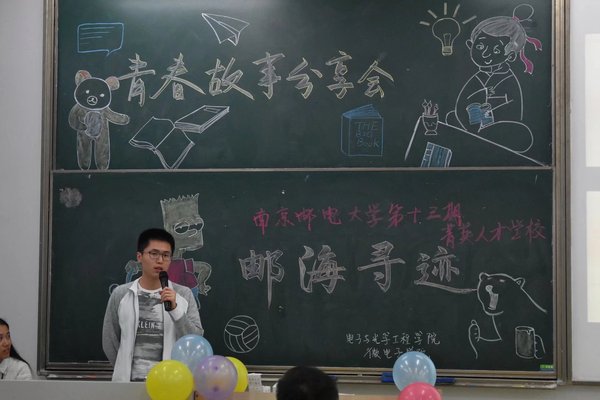 青春故事分享会
THE
BIG
BOOK
南京邮电大学第十三期
菁英人才学校
邮海寻迹
KLEIN
电子与光学工程学院
微电子学院